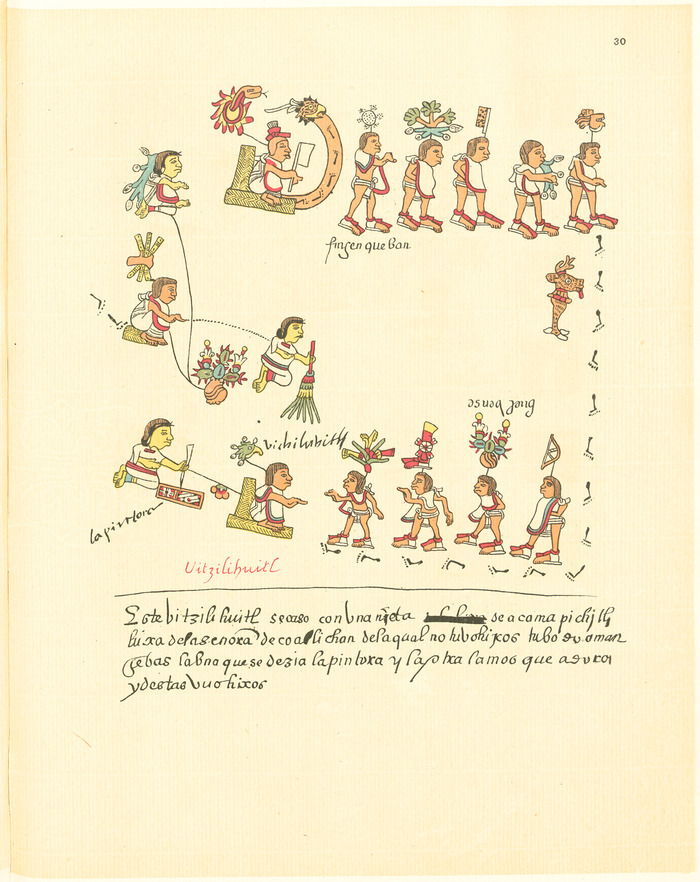 30
fingen que ban
buelbense
vichiluhitl
la pintora
Uitzilihuitl
Este vitzilihuitl se caso con vna nieta de acamapichtli
hixa de la señora de coatlichan de la qual no tubo hixos tubo dos man
çebas la vna que se dezia la pintora y la otra
y destas vuo hixos